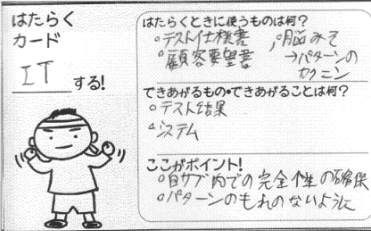 はたらく
カード
IT
する!
はたらくときに使うものは何?
○テスト仕様書
○顧客要望書
○脳みそ
→パターンの
カクニン
できあがるもの・できあがることは何?
○テスト結果
○システム
ここがポイント!
○自サブ内での完全性の確保
○パターンのもれのないように